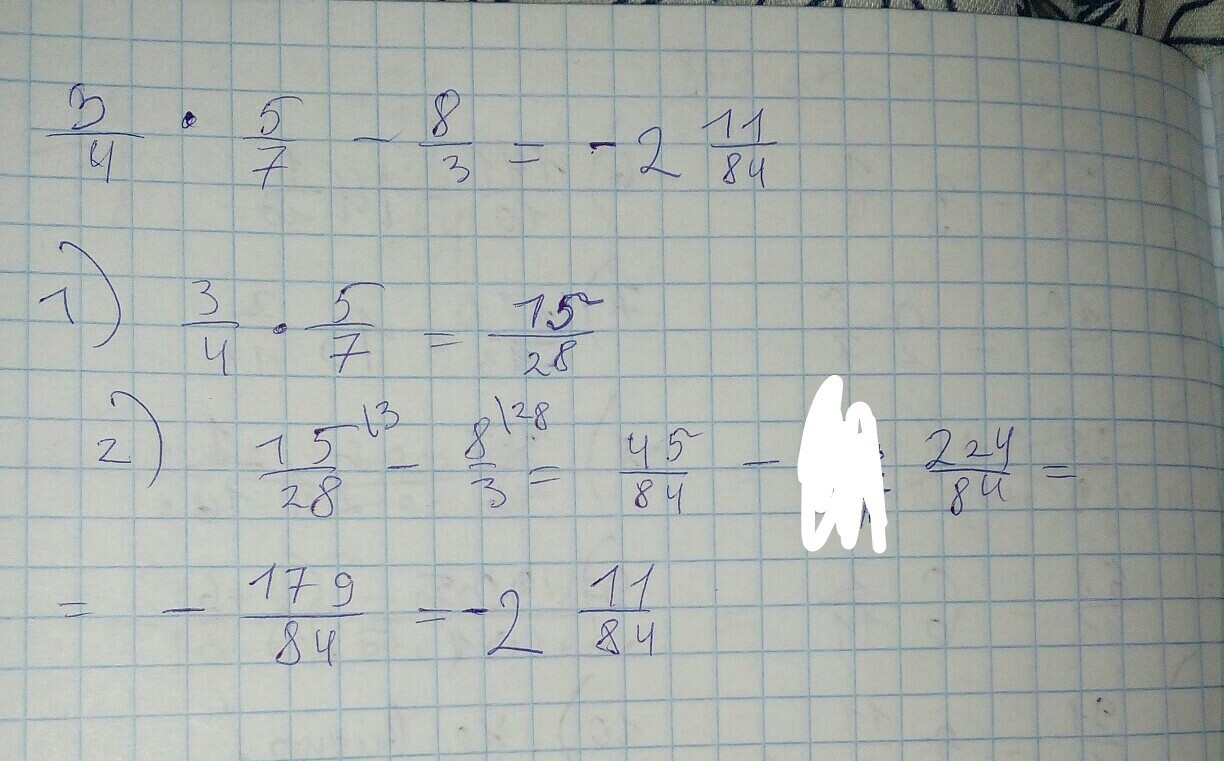 3/4 · 5/7 - 8/3 = - 2 11/84
1) 3/4 · 5/7 = 15/28
2) 15/28 \3 - 8/3 \28 = 45/84 - 224/84 =
= - 179/84 = - 2 11/84